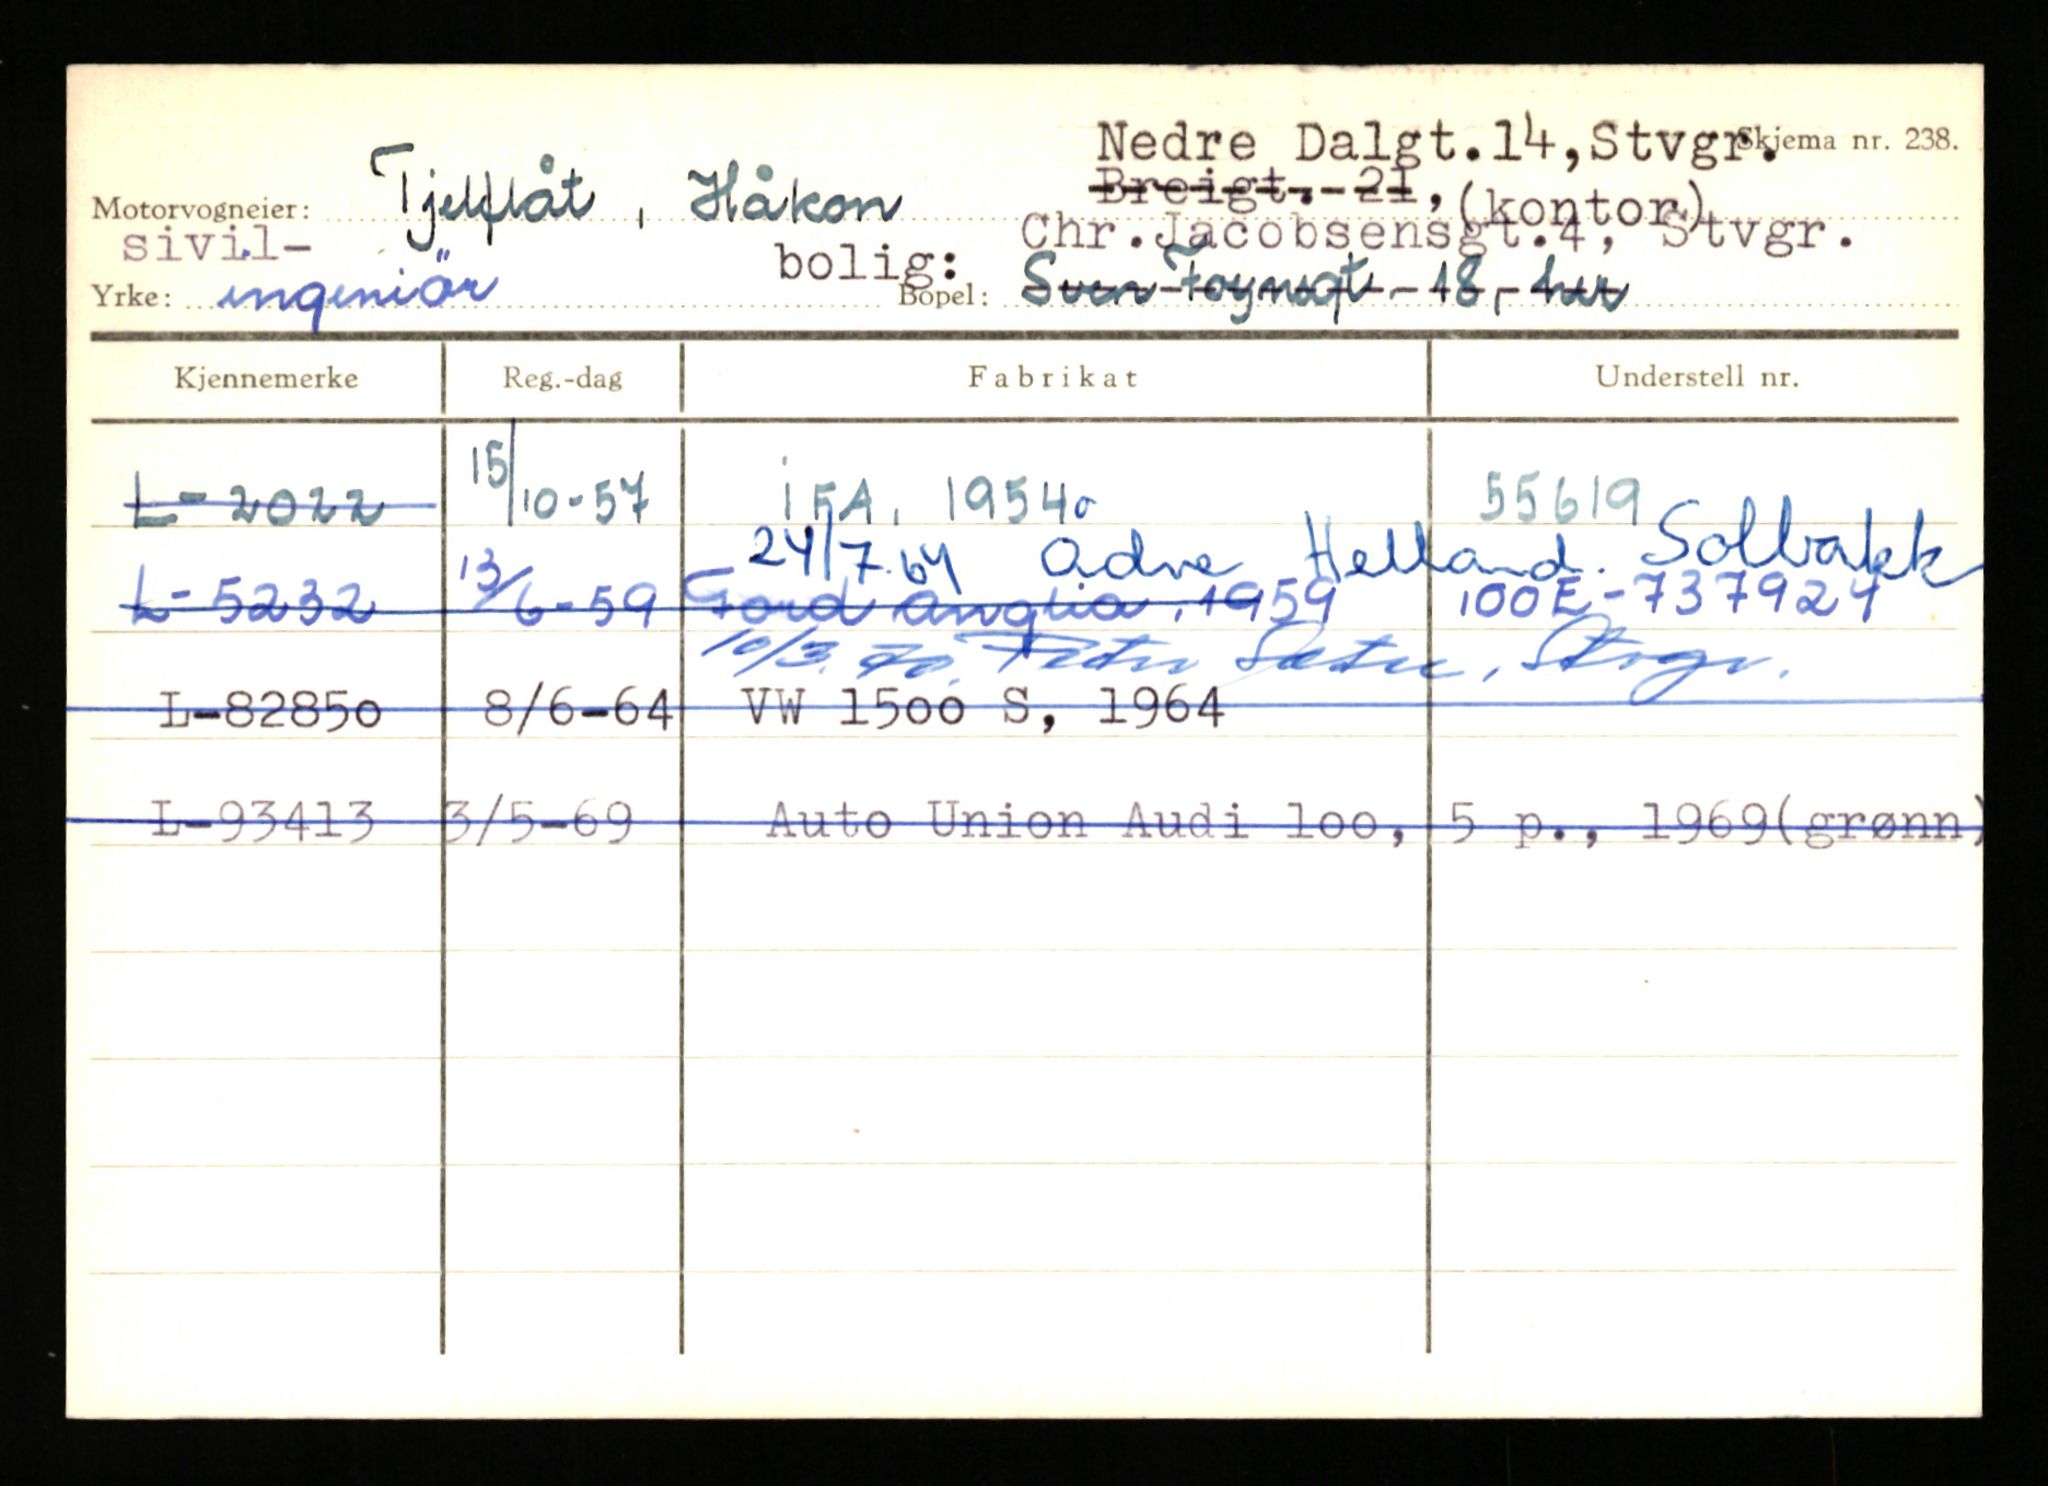 Nedre Dalgt.14,Stvgr.
Skjema nr. 238.
Breigt. 21,(kontor)
Motorvogneier: Tjelflåt, Håkon
Chr.Jacobsensgt.4, Stvgr.
sivil-
bolig:
Yrke: ingeniör Bopel: Sven Foynsgt. 18, her
Kjennemerke Reg.-dag Fabrikat Understell nr.
L-2022 15/10-57 IFA, 1954 55619
24/7.64 Adne Helland. Solbakk
L-5232 13/6-59 Ford Anglia, 1959 100E-737924
10/3.70. Petter Stvgr.
L-82850 8/6-64 VW 1500 S, 1964
L-93413 3/5-69 Auto Union Audi 100, 5 p., 1969(grønn)